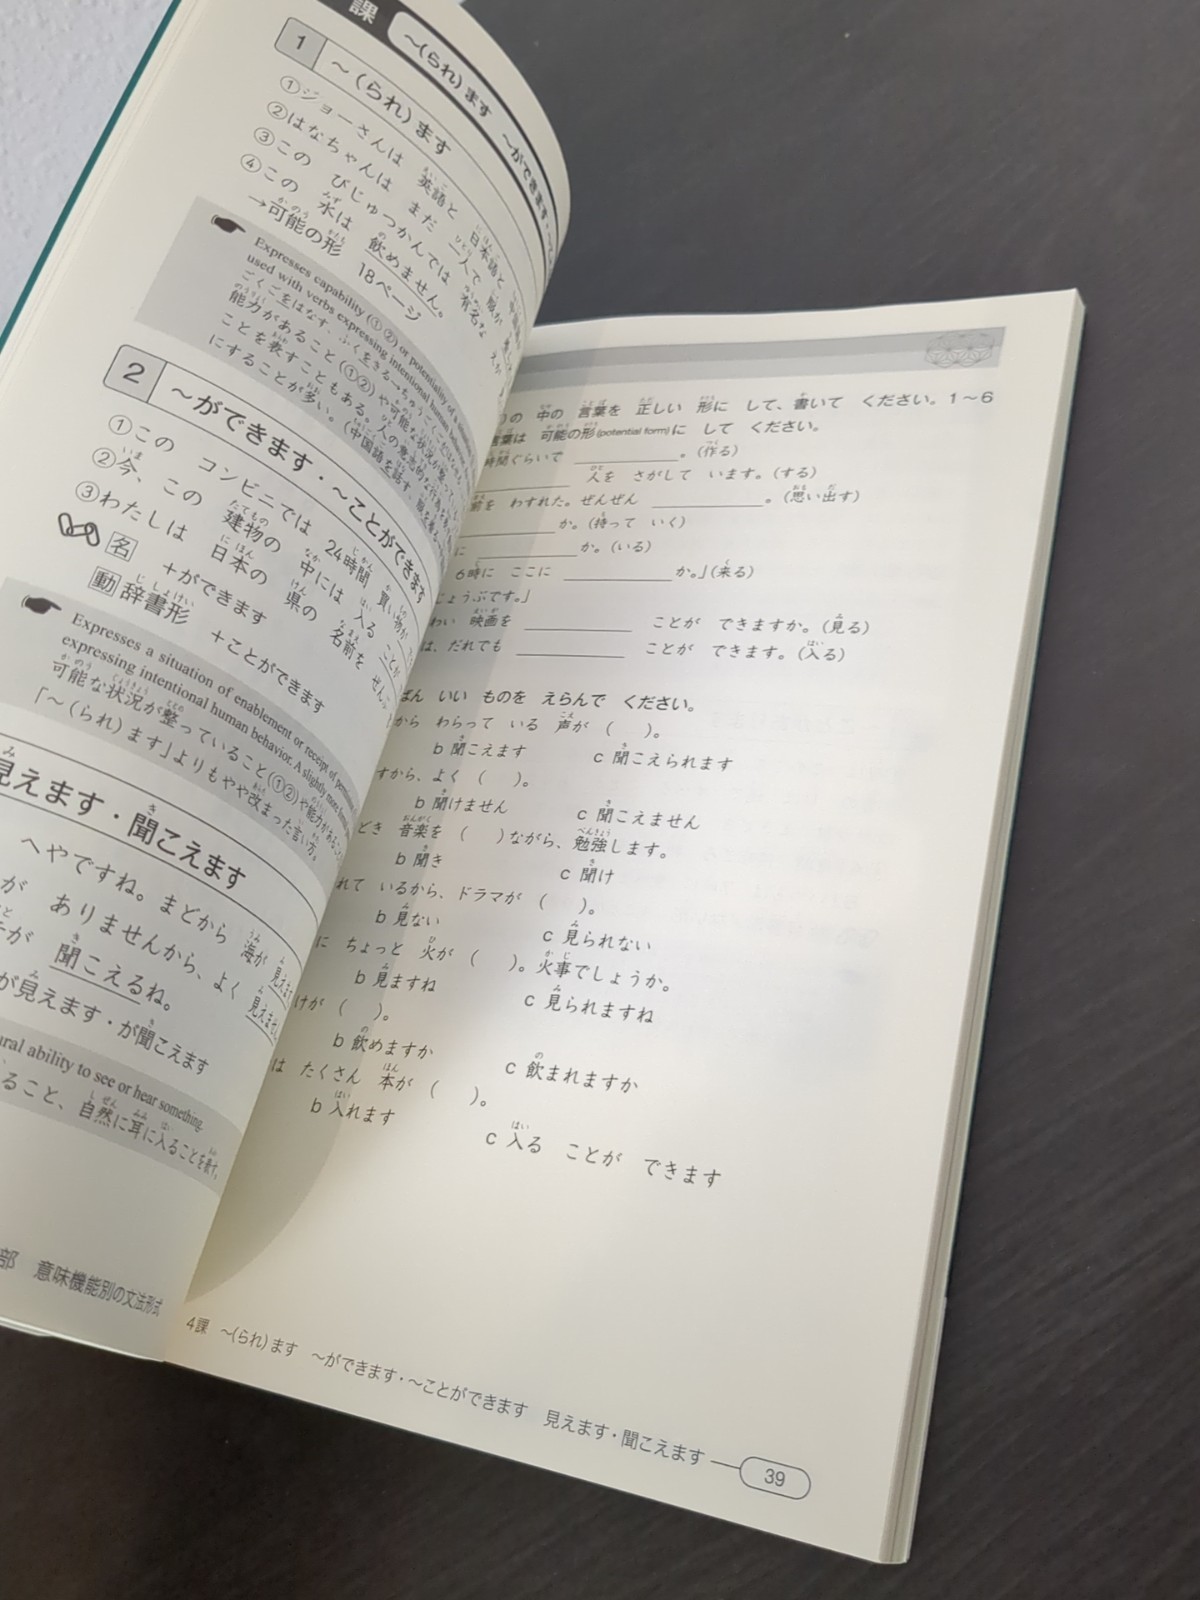 課 ～(られ)ます ～ができます・～こ
1 ～(られ)ます
①ジョーさんは 英語と 日本語と
②はなちゃんは まだ 一人で 服が
③この びじゅつかんでは 有名な
④この 水は 飲めません。
→可能の形 18ページ
Expresses capability (①②) or potentiality of a
used with verbs expressing intentional human behavior.
能力があること(①②)や可能な状況が整って
ことを表すこともある。人の意志的な行為を
にすることが多い。(中国語を話す、服を着る
2 ～ができます・～ことができます
①この コンビニでは 24時間 買い物が
②今、この 建物の 中には 入る ことが
③わたしは 日本の 県の 名前を ぜん
名 +ができます
動 辞書形 +ことができます
Expresses a situation of enablement or receipt of
expressing intentional human behavior. A slightly more
可能な状況が整っていること(①②)や能力がある
「～(られ)ます」よりもやや改まった言い方。
見えます・聞こえます
へやですね。まどから 海が 見えます
が ありませんから、よく 見えませ
が 聞こえるね。
が見えます・が聞こえます
ural ability to see or hear something.
ること、自然に耳に入ることを表す。
部 意味機能別の文法形式
)の 中の 言葉を 正しい 形に して、書いて ください。1～6
言葉は 可能の形(potential form)に して ください。
時間ぐらいで ＿＿＿＿。(作る)
＿＿＿＿ 人を さがして います。(する)
前を わすれた。ぜんぜん ＿＿＿＿。(思い出す)
＿＿＿＿か。(持って いく)
に ＿＿＿＿か。(いる)
6時に ここに ＿＿＿＿か。」(来る)
じょうぶです。」
わい 映画を ＿＿＿＿ ことが できますか。(見る)
は、だれでも ＿＿＿＿ ことが できます。(入る)
ばん いい ものを えらんで ください。
から わらって いる 声が ( )。
b 聞こえます c 聞こえられます
すから、よく ( )。
b 聞けません c 聞こえません
どき 音楽を ( )ながら、勉強します。
b 聞き c 聞け
れて いるから、ドラマが ( )。
b 見ない c 見られない
に ちょっと 火が ( )。火事でしょうか。
b 見ますね c 見られますね
けが ( )。
b 飲めますか c 飲まれますか
は たくさん 本が ( )。
b 入れます c 入る ことが できます
4課 ～(られ)ます ～ができます・～ことができます 見えます・聞こえます
39